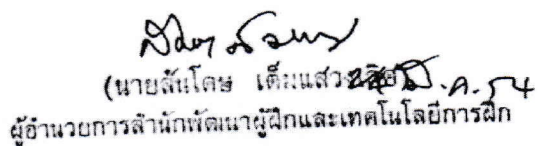 (นายสันโดษ เต็มแสวงเลิศ)
ธ.ค. 54
ผู้อำนวยการสำนักพัฒนาผู้ฝึกและเทคโนโลยีการฝึก